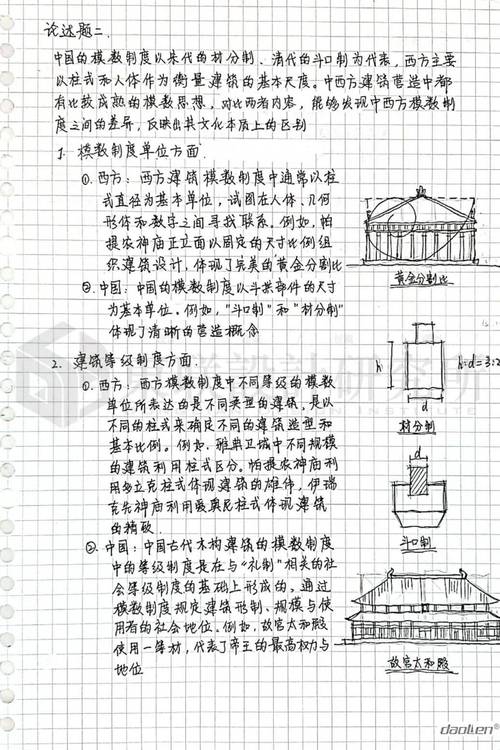 论述题二.
中国的模数制度以宋代的材分制、清代的斗口制为代表,西方主要
以柱式和人体作为衡量建筑的基本尺度。中西方建筑营造中都
有比较成熟的模数思想,对比两者内容,能够发现中西方模数制
度之间的差异,反映出其文化本质上的区别
1. 模数制度单位方面.
①.西方:西方建筑模数制度中通常以柱
式直径为基本单位,试图在人体、几何
形体和数字之间寻找联系。例如,帕
提农神庙正立面以固定的尺寸比例组
织建筑设计,体现了完美的黄金分割比
黄金分割比
②.中国:中国的模数制度以斗拱部件的尺寸
为基本单位。例如,"斗口制"和"材分制"
体现了清晰的营造概念
2. 建筑等级制度方面.
①.西方:西方模数制度中不同等级的模数
单位所表达的是不同类型的建筑,是以
不同的柱式来确定不同的建筑造型和
基本比例。例如.雅典卫城中不同规模
的建筑利用柱式区分。帕提农神庙利
用多立克柱式体现建筑的雄伟,伊瑞
克先神庙利用爱奥尼柱式体现建筑
的精致.
h
h:d=3:2
d
材分制
d
斗口制
②.中国:中国古代木构建筑的模数制度
中的等级制度是在与"礼制"相关的社
会等级制度的基础上形成的,通过
模数制度规定建筑形制、规模与使
用者的社会地位。例如,故宫太和殿
使用一等材,代表了帝王的最高权力与
地位
故宫太和殿
daolien®